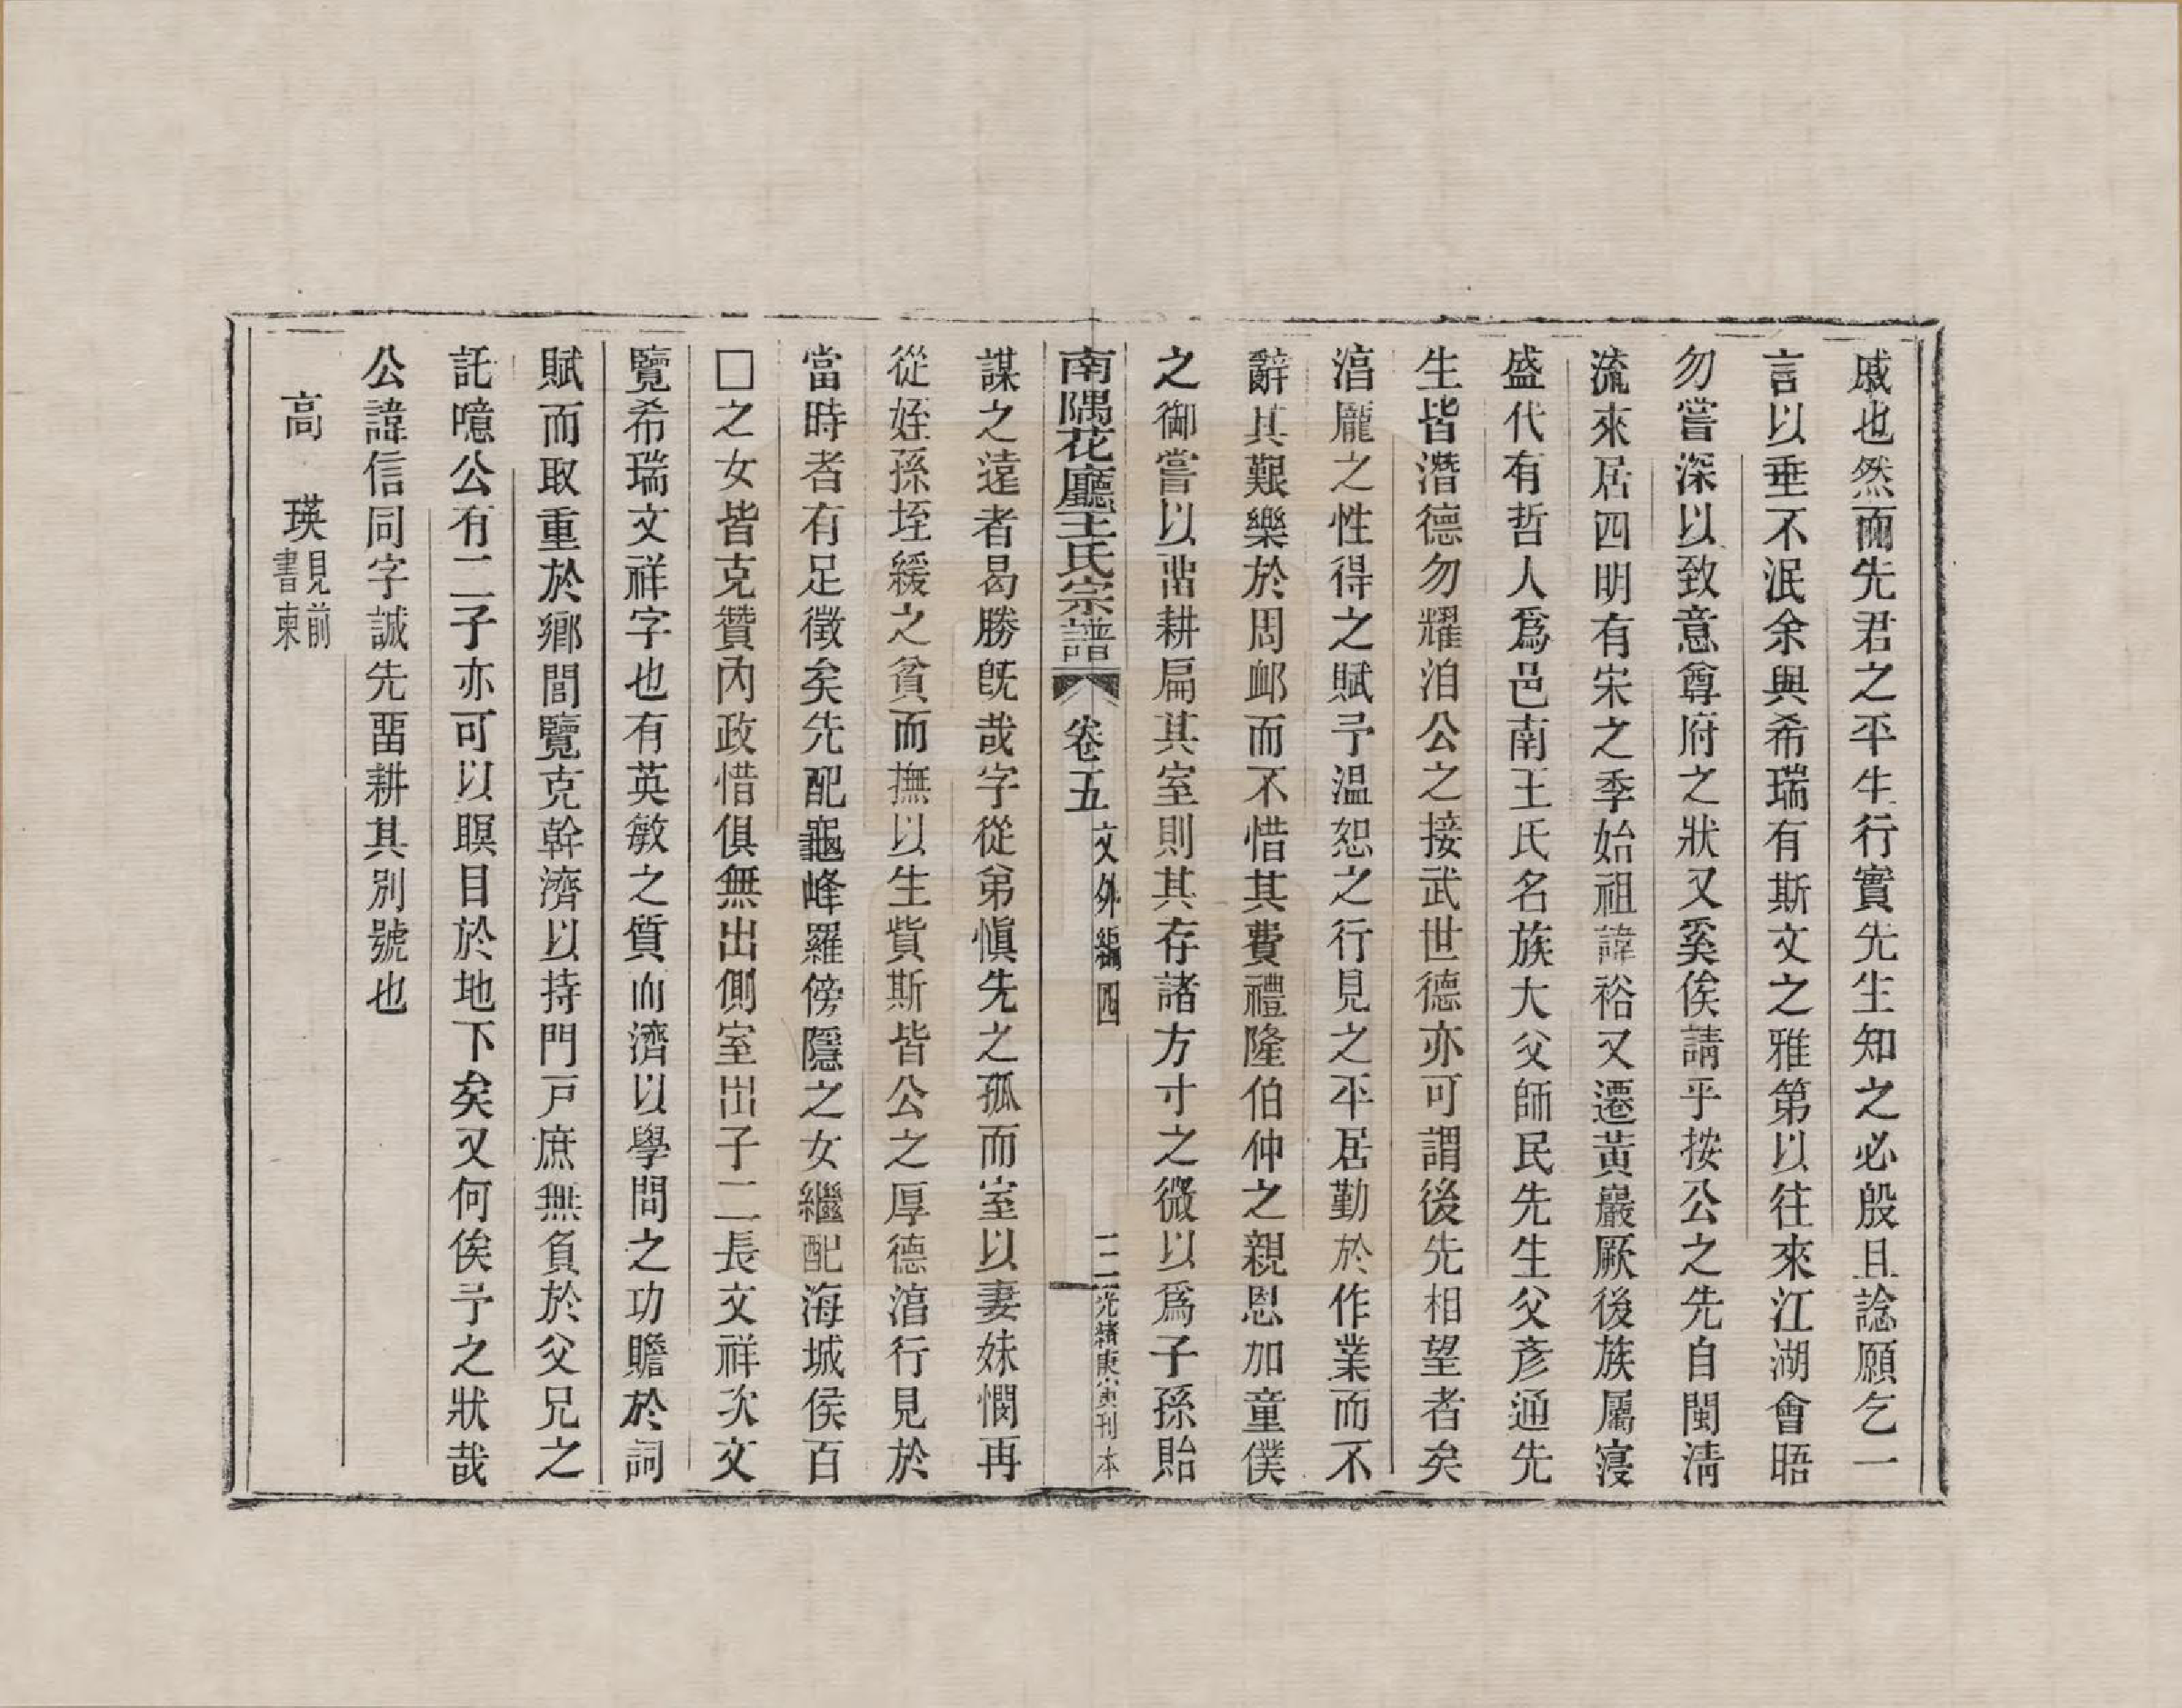 戚也然而先君之平生行實先生知之必殷且諗願乞一
言以垂不泯余與希瑞有斯文之雅第以往來江湖會晤
勿嘗深以致意尊府之狀又奚俟請乎按公之先自閩淸
流來居四明有宋之季始祖諱裕又遷黃巖厥後族屬寖
盛代有哲人爲邑南王氏名族大父師民先生父彥通先
生皆潛德勿耀洎公之接武世德亦可謂後先相望者矣
淯龐之性得之賦予溫恕之行見之平居勤於作業而不
辭其艱樂於周卹而不惜其費禮隆伯仲之親恩加童僕
之御嘗以畱耕扁其室則其存諸方寸之微以爲子孫貽
南隅花廳王氏宗譜 卷五 文外編四 三 光緒庚寅刊本
謀之遠者曷勝旣哉字從弟愼先之孤而室以妻妹憫再
從姪孫垤緩之貧而撫以生貲斯皆公之厚德淯行見於
當時者有足徵矣先配龜峰羅傍隱之女繼配海城侯百
□之女皆克贊內政惜俱無出側室出子二長文祥次文
覽希瑞文祥字也有英敏之質而濟以學問之功贍於詞
賦而取重於鄉閭覽克幹濟以持門戸庶無負於父兄之
託噫公有二子亦可以瞑目於地下矣又何俟予之狀哉
公諱信同字誠先畱耕其別號也
高 瑛 見前書柬